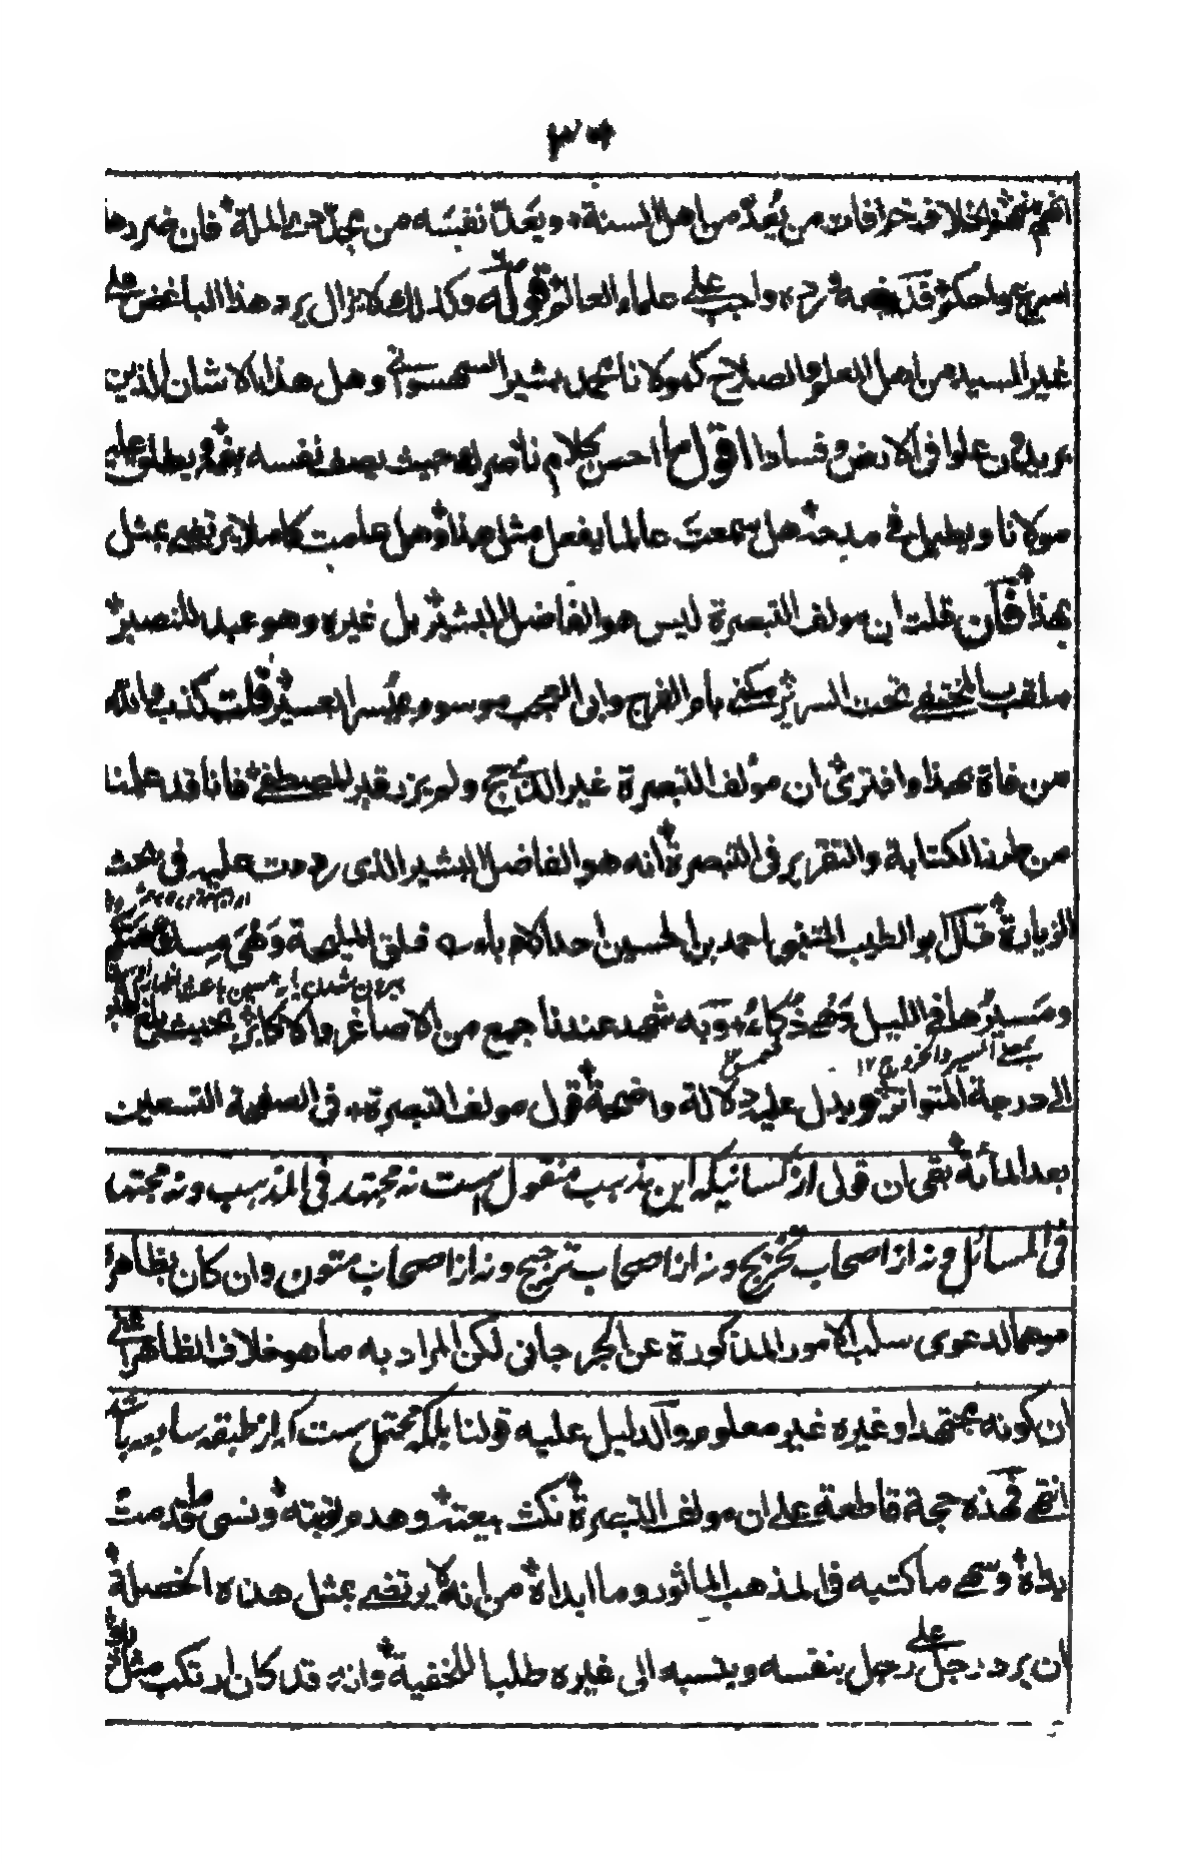 ٣٠
من خرافات من يُعدّ من اهل السنة، ويعدّ نفسه من مجدّدي الملة فان ضررها
قوله وكذلك لا يزال يرد هذا الباغض على واجب على علماء العالم
غير المسيد من اهل العلم والصلاح كمولانا محمد بشير السهسواني وهل هذا الا شان الذين
يريدون علوا في الارض وفسادا اقول ما احسن كلام ناصرك حيث يصف نفسه ويطلق عليه
مولانا ويطيل في مدحه هل سمعت عالما يفعل مثل هذا وهل علمت كاملا يرتضي بمثل
بهذا فان قلت ان مولف التبصرة ليس هو الفاضل البشير بل غيره وهو عبد النصير
ملقب المختفي تحت السرير مكنى بابي الفرج وابي العجب موسوم بميسر العسير قلت كذب والله
من فاه بهذا وافترى ان مؤلف التبصرة غير ولم يزد قدر المصطفى فانا قد علمنا
من طرز الكتابة والتقرير في التبصرة انه هو الفاضل البشير الذي رددت عليه في بحث
الزيارة قال ابو الطيب المتنبي احمد بن الحسين احد الادباء قلق المليحة وهي مسك هتكها
بيرون شدن
ومسيرها في الليل وهي ذكاء، وبه شهد عندنا جمع من الاصاغر والاكابر بحيث بلغ
بمعنى السير والخروج ١٢ شمس ١٢
الى درجة المتواتر ويدل عليه دلالة واضحة قول مولف التبصرة في الصفحة التسعين
بعد المائة بقي ان قولي از كسانيكه اين مذهب منقول است نه مجتهد في المذهب ونه مجتهد
في المسائل ونه از اصحاب تخريج ونه از اصحاب ترجيح ونه از اصحاب متون وان كان بظاهره
موهما لدعوى سلب الامور المذكورة عن الجرجاني لكن المراد به ما هو خلاف الظاهر اعني
ان كونه مجتهدا وغيره غير معلوم والدليل عليه قولنا بلكه محتمل ست كه از طبقه سابعه باشد
انتهى فهذه حجة قاطعة على ان مولف التبصرة نكث بيعته وهدم توبته ونسي ما قدمت
يداه وسهى ما كتبه في المذهب الماثور وما ابداه من انه لا يرتضي بمثل هذه الخصلة
ان يرد رجل على رجل بنفسه وينسبه الى غيره طلبا للخفية وانه قد كان ارتكب مثل